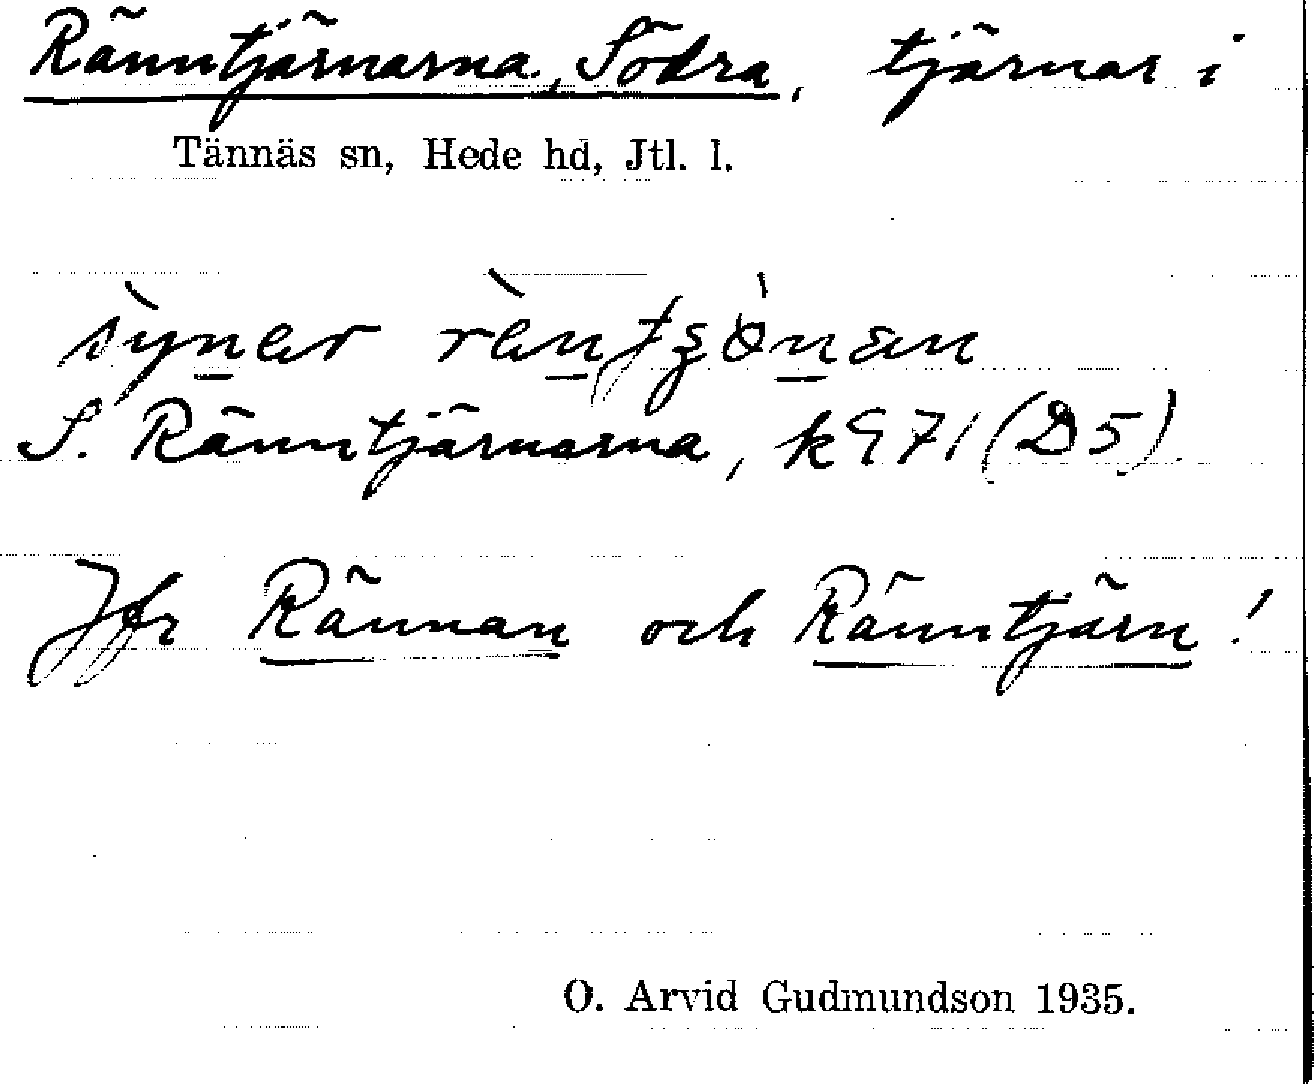 Ränntjärnarna, Södra, tjärnar i
Tännäs sn, Hede hd, Jtl. l.
S. Ränntjärnarna, k971 (D5)
Jfr Rännan och Ränntjärn!
O. Arvid Gudmundson 1935.